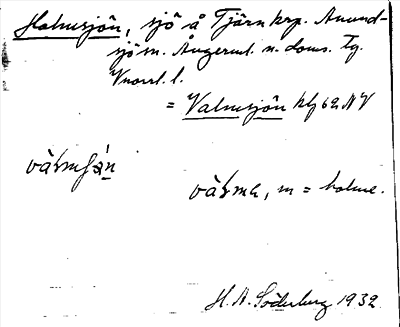 Holmsjön, sjö å Tjärn krp. Anund-
sjö sn. Ångerml. n. doms. tg.
Vnorrl. l.
= Valmsjön kbl 62 NV
våh̀mʃɵ́n
våh̀ma, m = holme.
H. A. Söderberg 1932